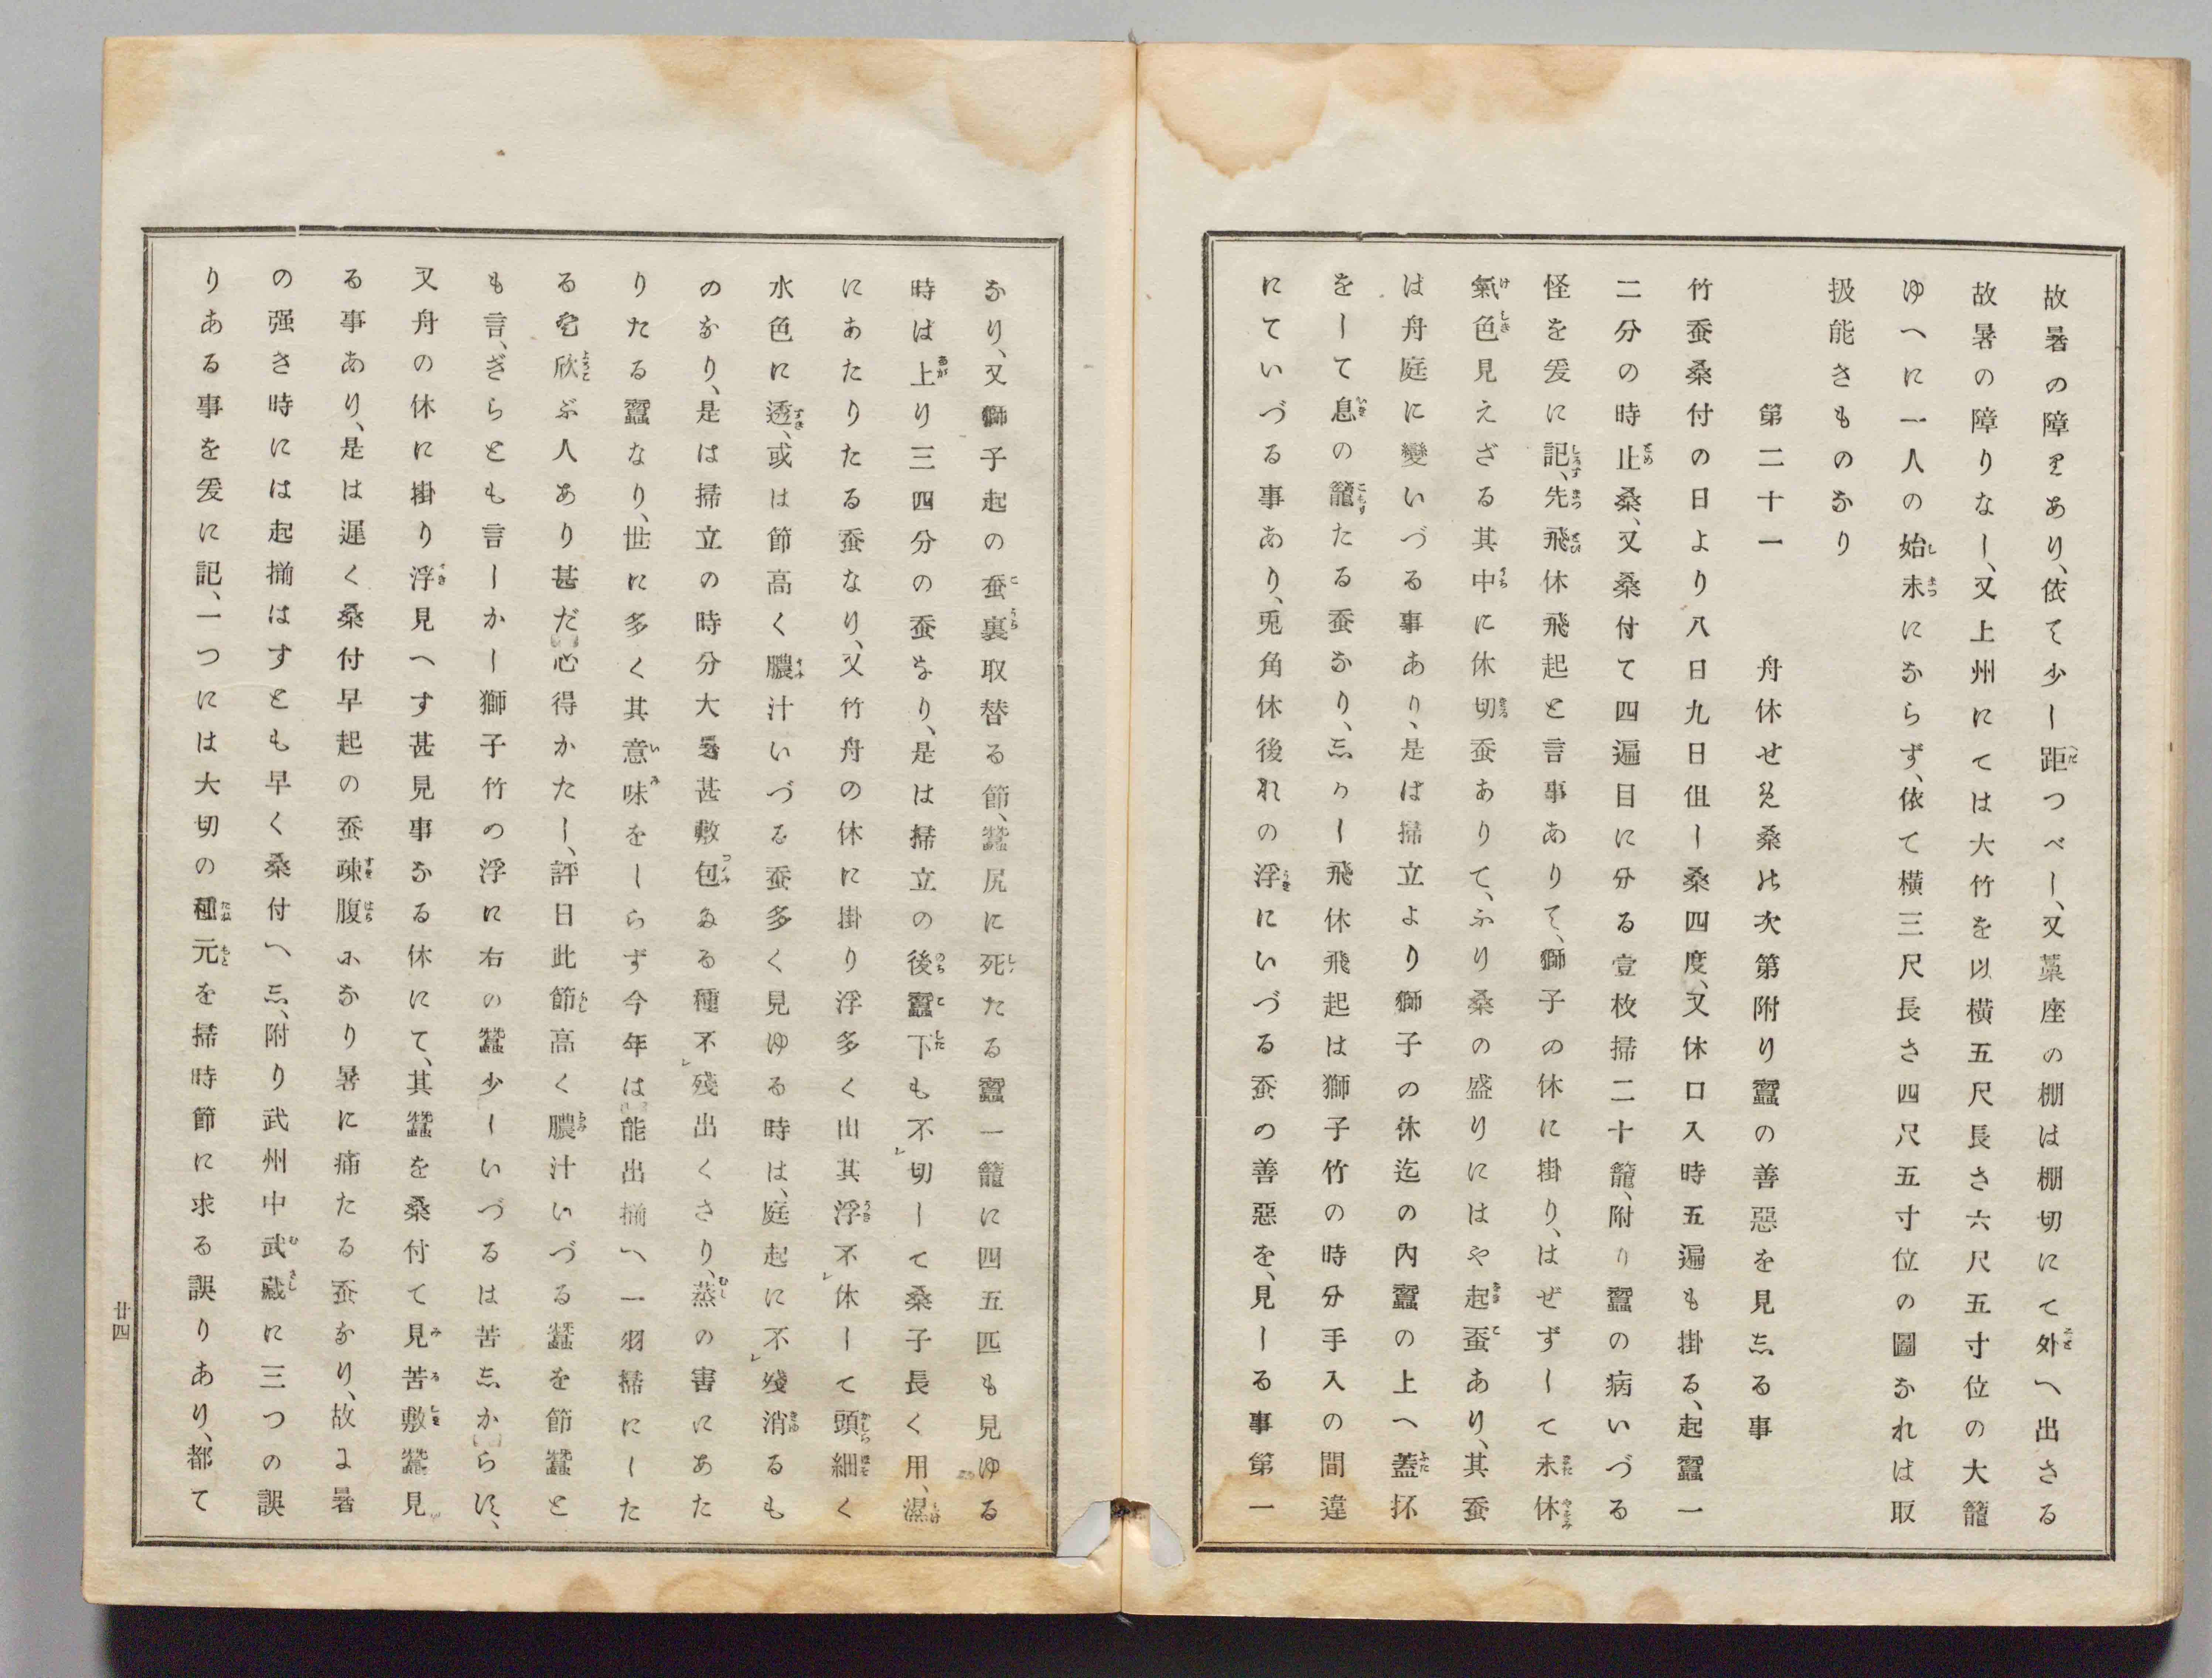 故暑の障りあり、依て少し距つべし、又藁座の棚は棚切にて外へ出さる
故暑の障りなし、又上州にては大竹を以横五尺長さ六尺五寸位の大籠
ゆへに一人の始末にならず、依て横三尺長さ四尺五寸位の圖なれは取
扱能きものなり
第二十一　舟休せゑ桑の次第附り蠶の善惡を見志る事
竹蚕桑付の日より八日九日但し桑四度、又休口入時五遍も掛る、起蠶一
二分の時止桑、又桑付て四遍目に分る壹枚掃二十籠、附り蠶の病いづる
怪を爰に記、先飛休飛起と言事ありて、獅子の休に掛り、はぜずして未休
氣色見えざる其中に休切蚕ありて、ふり桑の盛りにはや起蚕あり、其蚕
は舟庭に變いづる事あり、是は掃立より獅子の休迄の内蠶の上へ蓋抔
をして息の籠たる蚕なり、志かし飛休飛起は獅子竹の時分手入の間違
にていづる事あり、兎角休後れの浮にいづる蚕の善惡を、見しる事第一
なり、又獅子起の蚕裏取替る節、蠶尻に死たる蠶一籠に四五匹も見ゆる
時は上り三四分の蚕なり、是は掃立の後蠶下も不切して桑子長く用、濕
にあたりたる蚕なり、又竹舟の休に掛り浮多く出其浮不休して頭細く
水色に透、或は節高く膿汁いづる蚕多く見ゆる時は、庭起に不殘消るも
のなり、是は掃立の時分大暑甚敷包ある種不殘出くさり、蒸の害にあた
りたる蠶なり、世に多く其意味をしらず今年は能出揃へ一羽掃にした
るを欣ぶ人あり甚だ心得かたし、評日此節高く膿汁いづる蠶を節蠶と
も言、ぎらとも言しかし獅子竹の浮に右の蠶少しいづるは苦志からに、
又舟の休に掛り浮見へす甚見事なる休にて、其蠶を桑付て見苦敷蠶見
る事あり、是は遲く桑付早起の蚕疎腹になり暑に痛たる蚕なり、故に暑
の强き時には起揃はすとも早く桑付へ志、附り武州中武藏に三つの誤
りある事を爰に記、一つには大切の種元を掃時節に求る誤りあり、都て
廿四